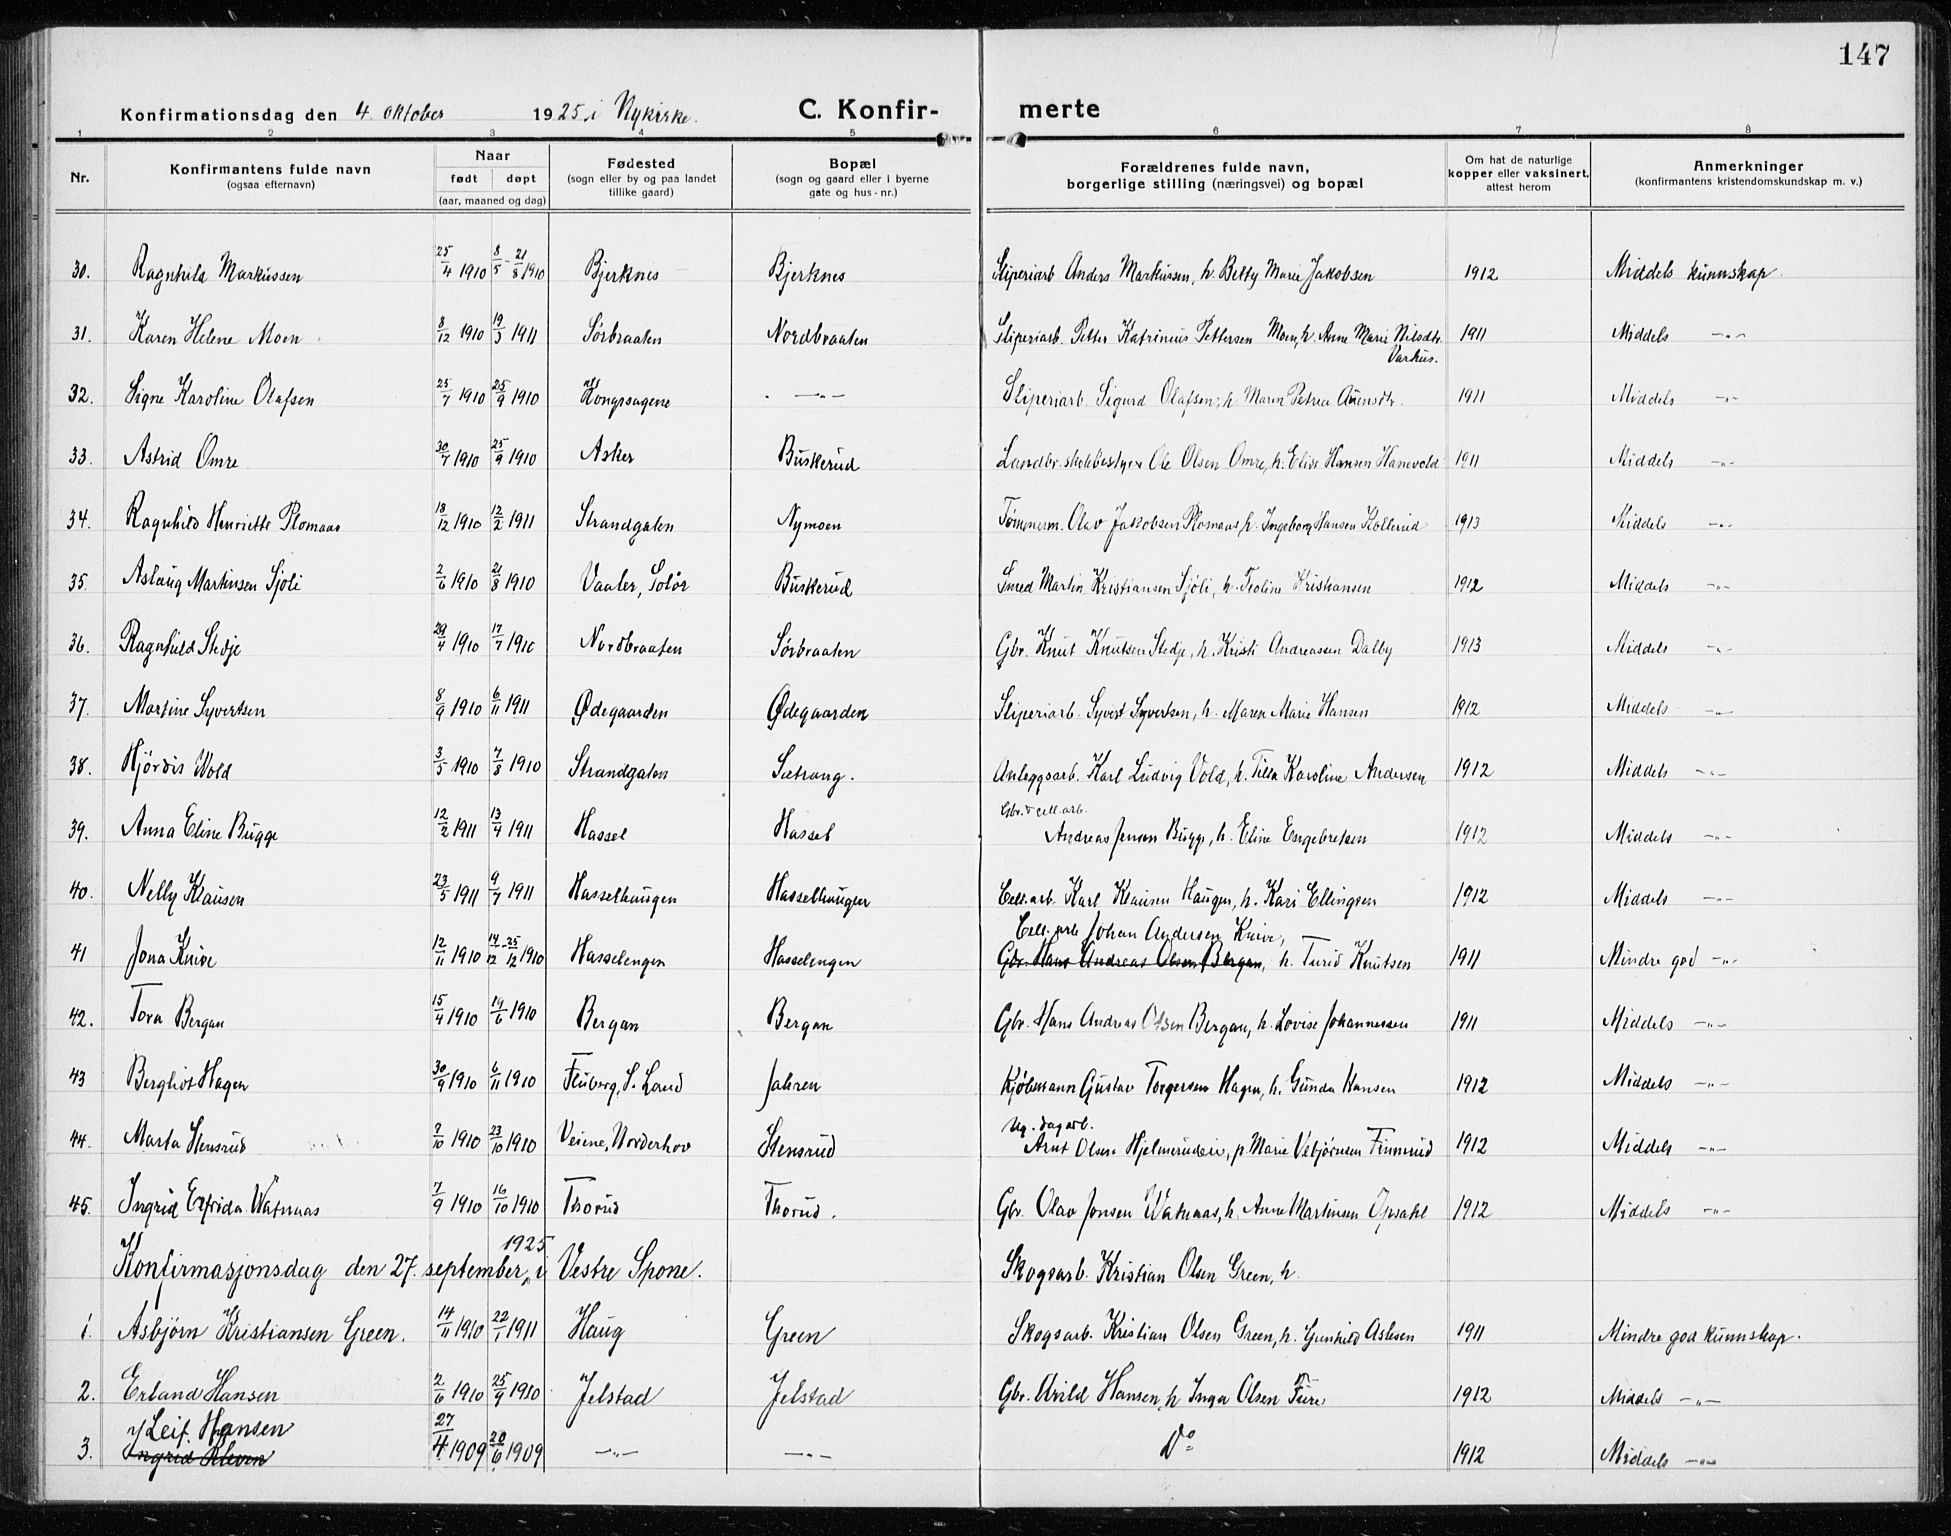 147
Konfirmationsdag den 4. oktober 1925 i Nykirke. C. Konfir- merte
1 2 3 4 5 6 7 8
Nr. Konfirmantens fulde navn (ogsaa efternavn) Naar født døpt (aar, maaned og dag) Fødested (sogn eller by og paa landet tillike gaard) Bopæl (sogn og gaard eller i byerne gate og hus-nr.) Forældrenes fulde navn, borgerlige stilling (næringsvei) og bopæl Om hat de naturlige kopper eller vaksinert, attest herom Anmerkninger (konfirmantens kristendomskundskap m. v.)
30. Ragnhild Markussen 25/4 1910 8/5 - 21/8 1910 Bjerknes Bjerknes Sliperiarb. Anders Markussen, h. Betty Marie Jakobsen 1912 Middels kunnskap.
31. Karen Helene Moen 8/12 1910 19/3 1911 Sørbraaten Nordbraaten Sliperiarb. Petter Katrinius Pettersen Moen, h. Anne Marie Nilsdtr. Varhus. 1911 Middels -"-
32. Signe Karoline Olafsen 25/7 1910 25/9 1910 Kongssagene -"- Sliperiarb. Sigurd Olafsen, h. Maren Petrea 1911 Middels -"-
33. Astrid Omre 30/7 1910 25/9 1910 Asker Buskerud Landbr.skolebestyrer Ole Olsen Omre, h. Elise Hansen Hanevold 1911 Middels -"-
34. Ragnhild Henriette Plomaas 18/12 1910 12/2 1911 Strandgaten Nymoen Tømmerm. Olav Jakobsen Plomaas, h. Ingeborg Hansen Kollerud 1913 Middels -"-
35. Aslaug Martinsen Sjøli 2/6 1910 21/8 1910 Vaaler, Solør Buskerud Smed Martin Kristiansen Sjøli, h. Teoline Kristiansen 1912 Middels -"-
36. Ragnhild Stedje 29/4 1910 17/7 1910 Nordbraaten Sørbraaten Gbr. Knut Knutsen Stedje, h. Kristi Andreassen Dalby 1913 Middels -"-
37. Martine Syvertsen 8/9 1910 6/11 1911 Ødegaarden Ødegaarden Sliperiarb. Syvert Syvertsen, h. Maren Marie Hansen 1912 Middels -"-
38. Hjørdis Wold 3/5 1910 7/8 1910 Strandgaten Sætrang. Anleggsarb. Karl Ludvig Vold, h. Tilla Karoline Andersen 1912 Middels -"-
39. Anna Eline Bugge 12/2 1911 13/4 1911 Hassel Hassel Gbr. & cell.arb. Andreas Jensen Bugge, h. Eline Engebretsen 1912 Middels -"-
40. Nelly Klausen 23/5 1911 9/7 1911 Hasselhaugen Hasselhaugen Cell.arb. Karl Klausen Haugen, h. Kari Ellingsen 1912 Middels -"-
Cell.arb. Johan Andersen Knive,
41 Jona Knive 12/11 1910 14/12 - 25/12 1910 Hasselengen Hasselengen Gbr. Hans Andreas Olsen Bergan, h. Turid Knutsen 1911 Mindre god -"-
42. Tora Bergan 15/4 1910 19/6 1910 Bergan Bergan Gbr. Hans Andreas Olsen Bergan, h. Lovise Johannessen 1911 Middels -"-
43 Bergliot Hagen 30/9 1910 6/11 1910 Fluberg, S. Land Jahren Kjøbmann Gustav Torgersen Hagen, h. Gunda Hansen 1912 Middels -"-
44. Marta Stensrud 7/10 1910 23/10 1910 Veiene, Norderhov Stensrud Ug. dagarb. Arnt Olsen Hjelmerudeie, p. Marie Vebjørnsen Finnerud 1912 Middels -"-
45. Ingrid Elfrida Watnaas 7/9 1910 16/10 1910 Thorud Thorud. Gbr. Olav Jonsen Watnaas, h. Anne Martinsen Opsahl 1912 Middels -"-
Konfirmasjonsdag den 27. september 1925 i Vestre Spone. Skogsarb. Kristian Olsen Green, h.
1. Asbjørn Kristiansen Green. 14/11 1910 22/1 1911 Haug Green Skogsarb. Kristian Olsen Green, h. Gunhild Aslesen 1911 Mindre god kunnskap.
2. Erland Hansen 2/6 1910 25/9 1910 Jelstad Jelstad Gbr. Arild Hansen, h. Inga Olsen Ture 1912 Middels -"-
Leif Hansen
3. Ingrid Kleven 27/4 1909 20/6 1909 -"- -"- Do 1912 Middels -"-